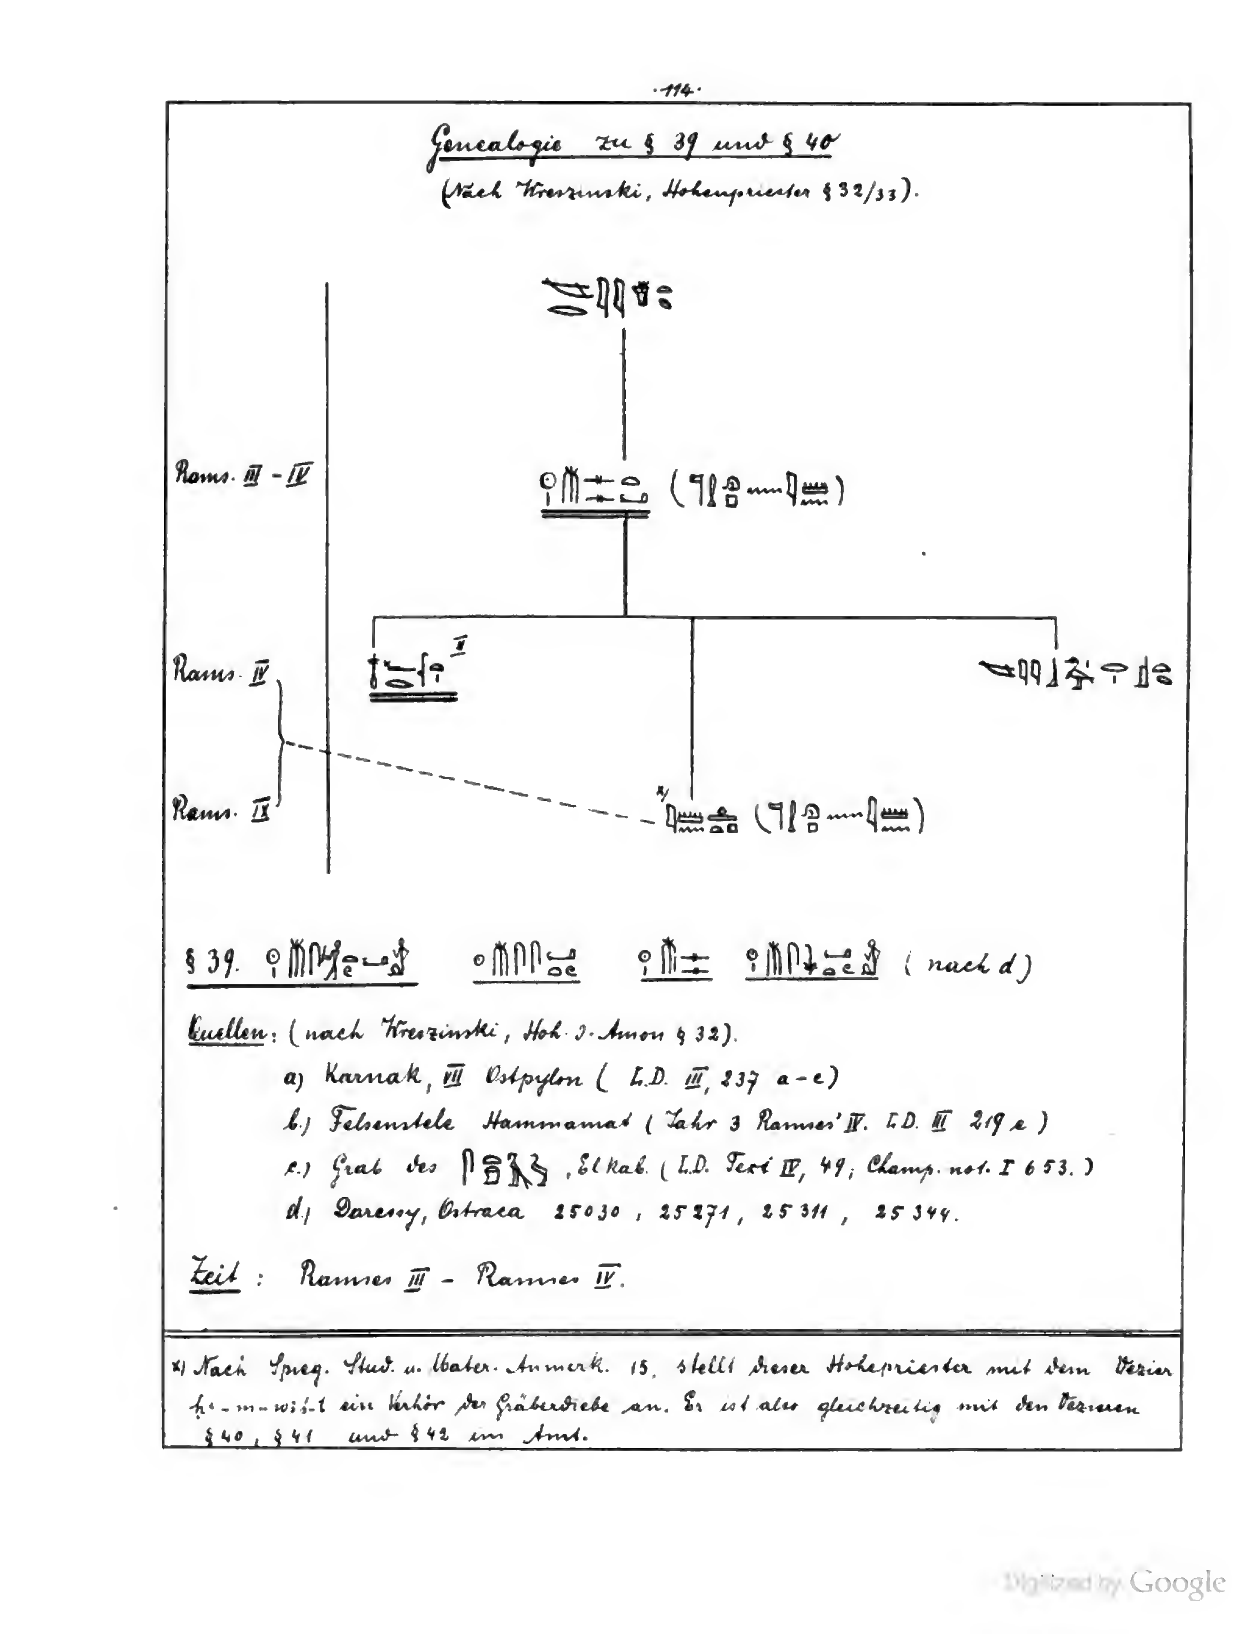 ·114·
Genealogie zu § 39 und § 40
(Nach Wreszinski, Hohenpriester § 32/33).
Rams. III - IV
Rams. IV
II
Rams. IX
x)
§ 39. (nach d)
Quellen: (nach Wreszinski, Hoh. d. Amon § 32).
a) Karnak, VII Ostpylon ( L.D. III, 237 a-e)
b.) Felsenstele Hammamat ( Jahr 3 Ramses' IV. L.D. III 219 e )
c.) Grab des , El Kab. ( L.D. Text IV, 49; Champ. not. I 653. )
d.) Daressy, Ostraca 25030 , 25271 , 25311 , 25344.
Zeit : Ramses III - Ramses IV.
x) Nach Spieg. Stud. u. Mater. Anmerk. 15, stellt dieser Hohepriester mit dem Vezier
ein Verhör der Gräberdiebe an. Er ist also gleichzeitig mit den Vezieren
§ 40, § 41 und § 42 im Amt.
Digitized by Google